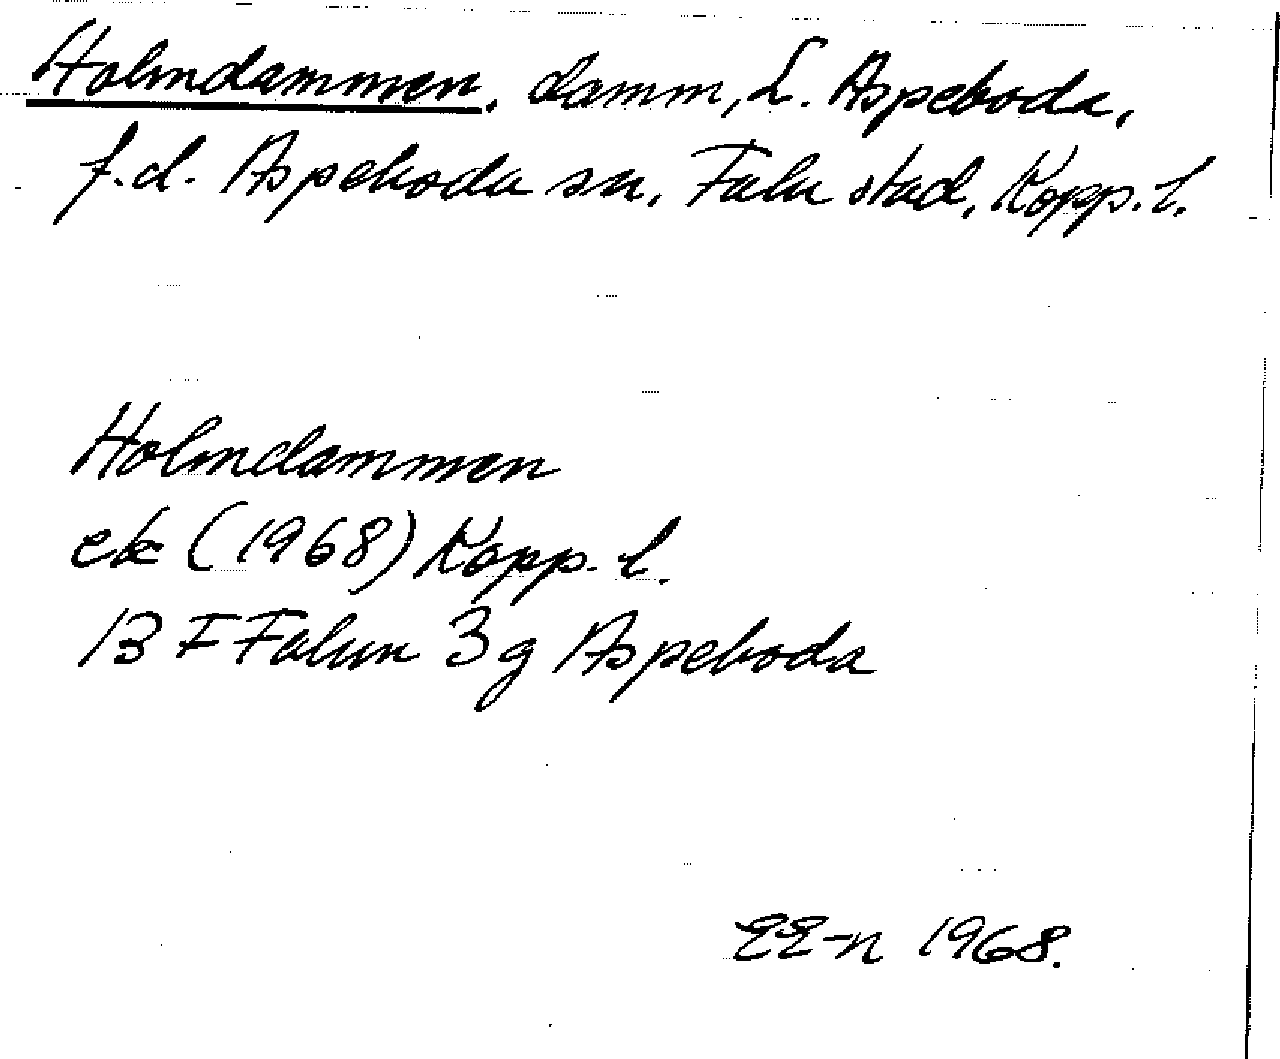 Holmdammen, damm, L. Aspeboda,
f.d. Aspeboda sn, Falu stad, Kopp. l.
Holmdammen
ek (1968) Kopp. l.
13 F Falun 3g Aspeboda
EE-n 1968.